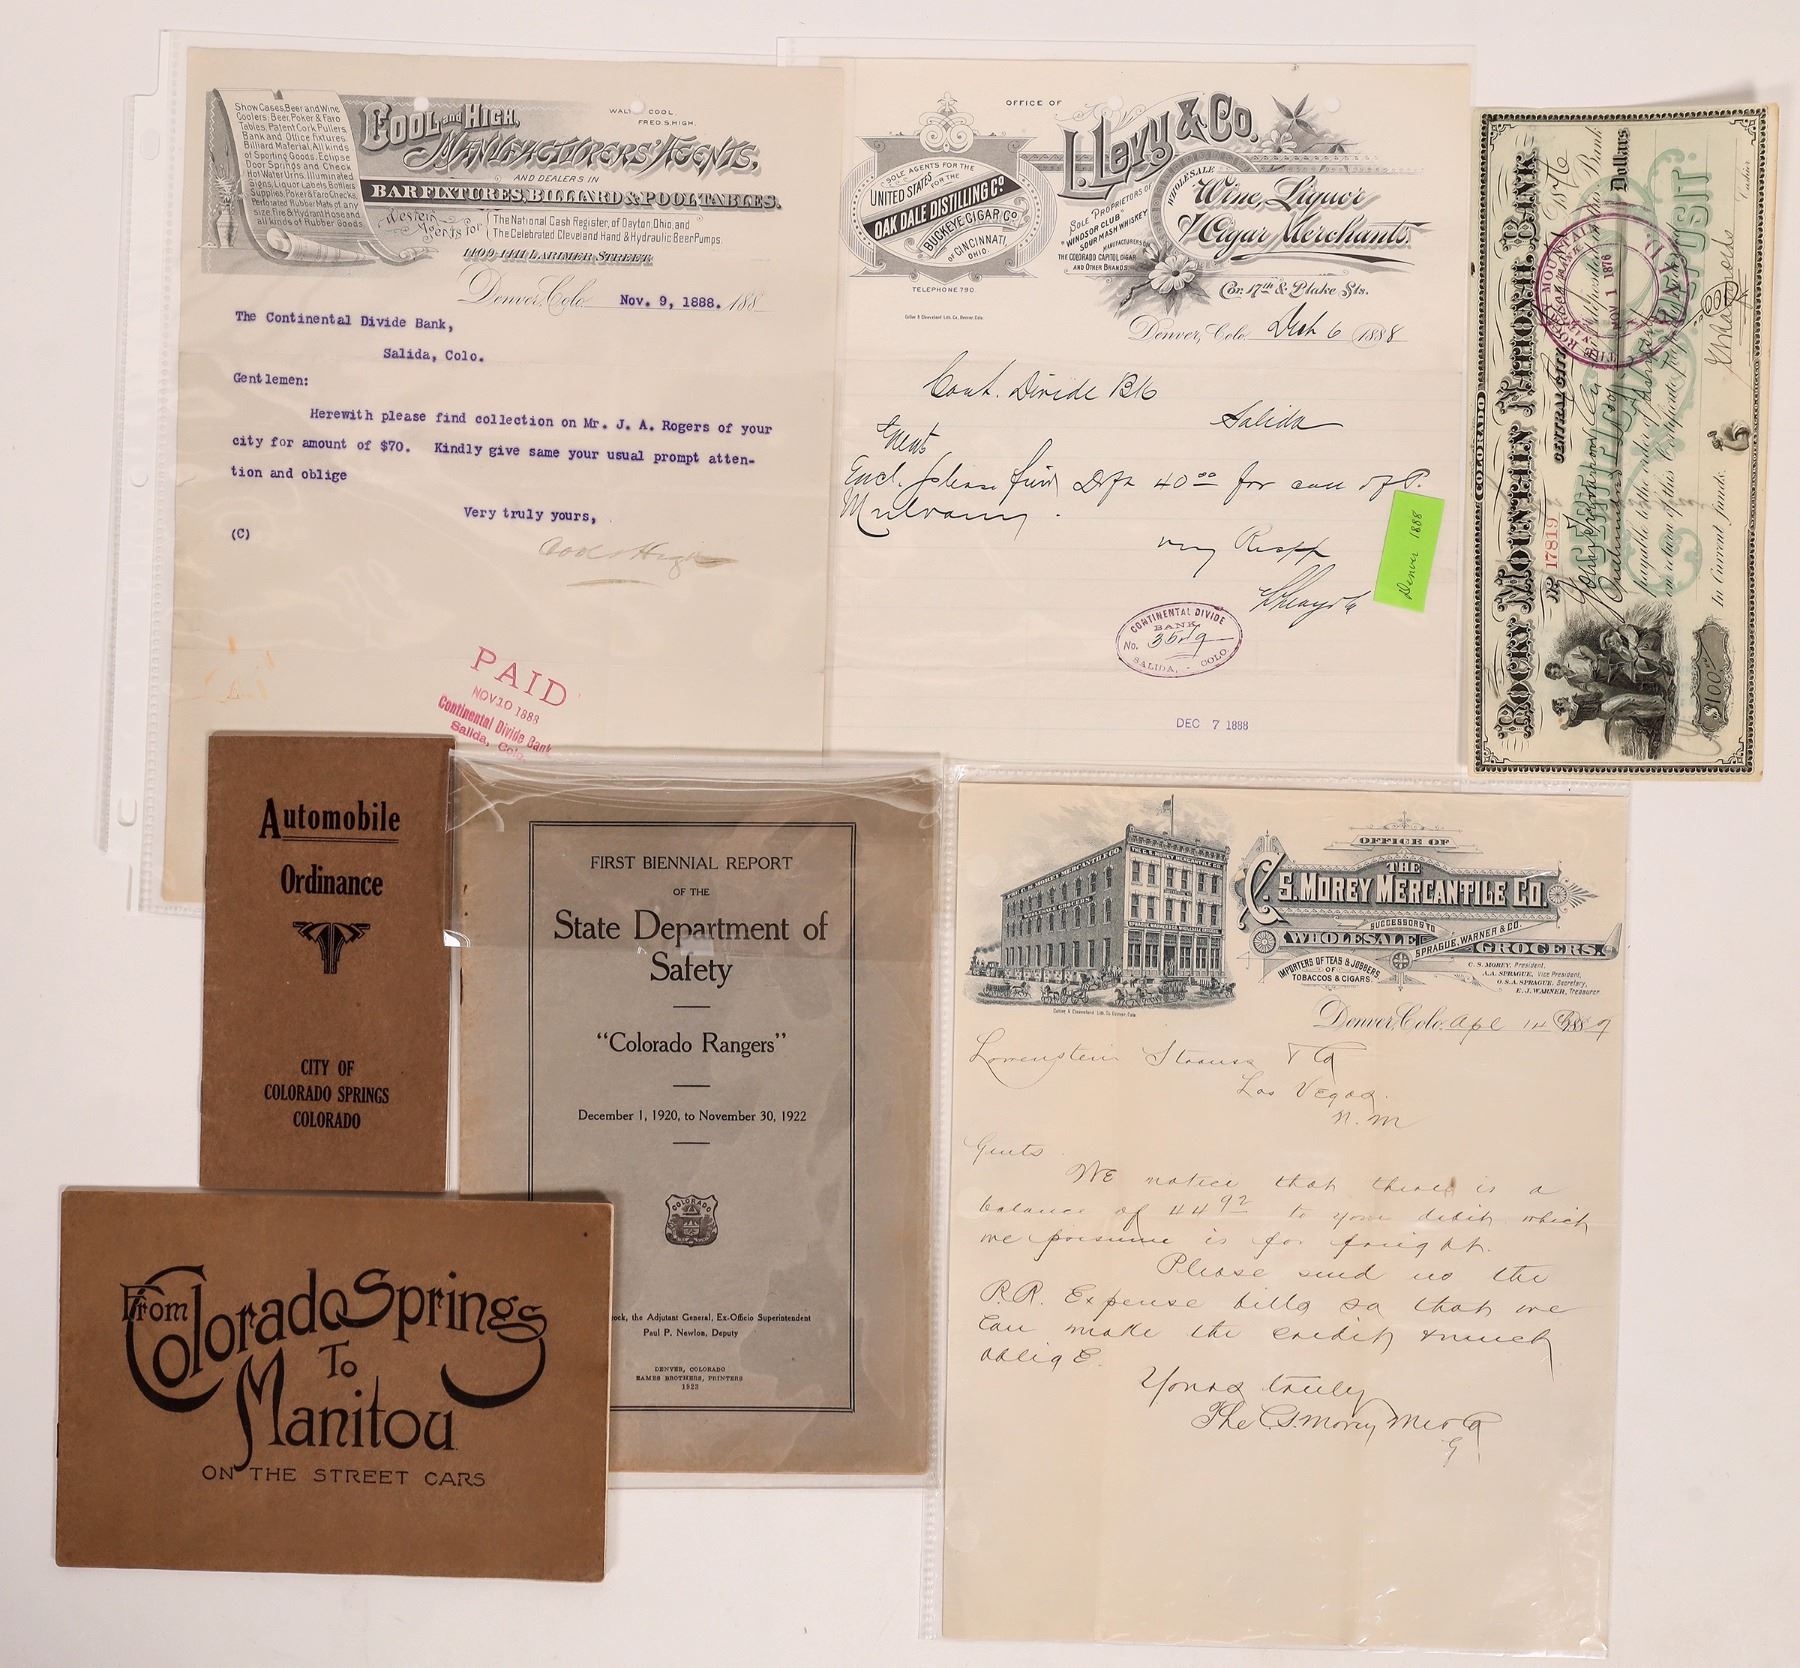 Show Cases, Beer and Wine
Coolers; Beer, Poker & Faro
Tables, Patent Cork Pullers,
Bank and Office fixtures
Billiard Material, All kinds
of Sporting Goods. Eclipse
Door Springs and Check
Hot Water Urns. Illuminated
Signs, Liquor Labels, Bottlers
Supplies, Poker & Faro Checks,
Perforated Rubber Mats of any
size. Fire & Hydrant Hose and
all kinds of Rubber Goods
COOL and HIGH,
WALT COOL.
FRED S. HIGH.
MANUFACTURERS' AGENTS,
AND DEALERS IN
BAR FIXTURES, BILLIARD & POOL TABLES.
Western Agents for
The National Cash Register, of Dayton, Ohio, and
The Celebrated Cleveland Hand & Hydraulic Beer Pumps.
1109-1111 LARIMER STREET
Denver, Colo. Nov. 9, 1888. 188
The Continental Divide Bank,
Salida, Colo.
Gentlemen:
Herewith please find collection on Mr. J. A. Rogers of your
city for amount of $70. Kindly give same your usual prompt atten-
tion and oblige
Very truly yours,
(C)
Cool & High
PAID
NOV 10 1888
Continental Divide Bank
Salida, Colo.
OFFICE OF
L. Levy & Co.
SOLE AGENTS FOR THE
UNITED STATES FOR THE
OAK DALE DISTILLING CO.
BUCKEYE CIGAR CO.
OF CINCINNATI
OHIO.
TELEPHONE 790.
SOLE PROPRIETORS OF
"WINDSOR CLUB"
SOUR MASH WHISKEY
MANUFACTURERS OF
THE COLORADO CAPITOL CIGAR
AND OTHER BRANDS.
WHOLESALE
Wine, Liquor
& Cigar Merchants.
Cor. 17th & Blake Sts.
Collier & Cleaveland Lith. Co. Denver, Colo.
Denver, Colo. 6 1888
Cont. Divide Bk
Salida
Gents
Encl. please find Dft 40 00 for acc of P.
Mulvany.
Very Respy
L Levy & Co
Denver 1888
CONTINENTAL DIVIDE
BANK
No.
SALIDA, - COLO.
DEC 7 1888
COLORADO
ROCKY MOUNTAIN NATIONAL BANK
CENTRAL CITY
No 17819
NOV 1 1876
CERTIFICATE OF DEPOSIT.
Dollars
payable to the order of
in return of this Certificate
In Current funds.
Cashier
$1100
Automobile
Ordinance
CITY OF
COLORADO SPRINGS
COLORADO
FIRST BIENNIAL REPORT
OF THE
State Department of
Safety
"Colorado Rangers"
December 1, 1920, to November 30, 1922
COLORADO
rock, the Adjutant General, Ex-Officio Superintendent
Paul P. Newlon, Deputy
DENVER, COLORADO
EAMES BROTHERS, PRINTERS
1923
From Colorado Springs
To
Manitou
ON THE STREET CARS
THE C. S. MOREY MERCANTILE CO.
THE C. S. MOREY MERCANTILE CO.
WHOLESALE GROCERS
SPRAGUE, WARNER & CO. WHOLESALE GROCERS.
Collier & Cleaveland Lith. Co. Denver, Colo.
OFFICE OF
THE
C. S. MOREY MERCANTILE CO.
SUCCESSORS TO
SPRAGUE, WARNER & CO.
WHOLESALE GROCERS.
IMPORTERS OF TEAS & JOBBERS
OF
TOBACCOS & CIGARS.
C. S. MOREY, President,
A. A. SPRAGUE, Vice President,
O. S. A. SPRAGUE, Secretary,
E. J. WARNER, Treasurer.
Denver, Colo. Apl 14 1889
Lowenstein Strauss & Co
Las Vegas.
N. M
Gents
We notice that there is a
balance of 44 92 to your debit which
we presume is for freight.
Please send us the
R. R. Expense bills so that we
can make the credit & much
oblige.
Yours truly
The C. S. Morey Mer Co
G